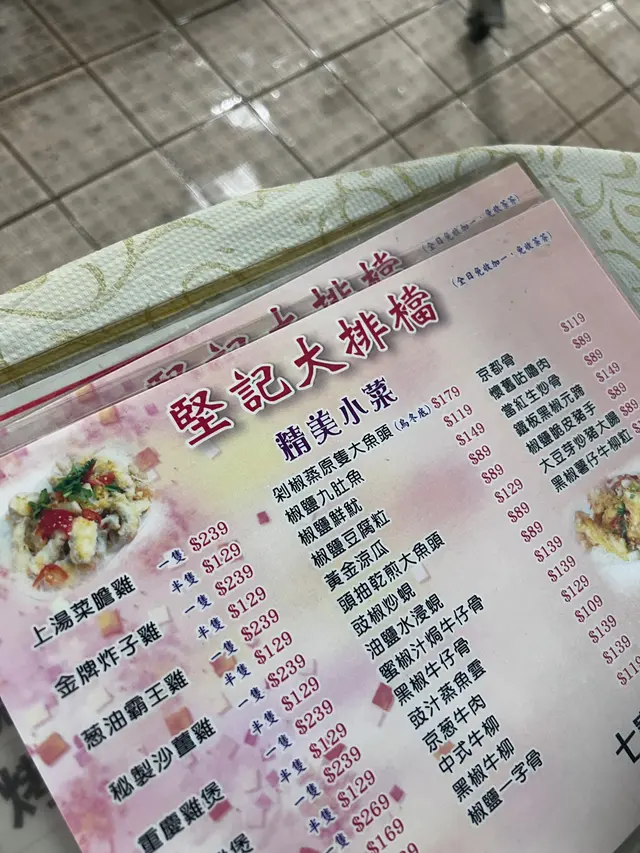 堅記大排檔
(全日免收加一·免收茶芥)
堅記大排檔
(全日免收加一·免收茶芥)
精美小菜
上湯菜膽雞 一隻 $239
半隻 $129
金牌炸子雞 一隻 $239
半隻 $129
葱油霸王雞 一隻 $239
半隻 $129
秘製沙薑雞 一隻 $239
半隻 $129
重慶雞煲 一隻 $239
半隻 $129
煲 一隻 $269
半隻 $169
剁椒蒸原隻大魚頭(烏冬底) $179
椒鹽九肚魚 $119
椒鹽鮮魷 $149
椒鹽豆腐粒 $89
黃金涼瓜 $89
頭抽乾煎大魚頭 $129
豉椒炒蜆 $89
油鹽水浸蜆 $89
蜜椒汁焗牛仔骨 $139
黑椒牛仔骨 $139
豉汁蒸魚雲 $129
京葱牛肉 $109
中式牛柳 $139
黑椒牛柳 $139
椒鹽一字骨 $119
京都骨 $119
懷舊咕嚕肉 $89
當紅生炒骨 $89
鐵板黑椒元蹄 $149
椒鹽脆皮豬手 $89
大豆芽炒豬大腸 $89
黑椒薯仔牛柳粒
七